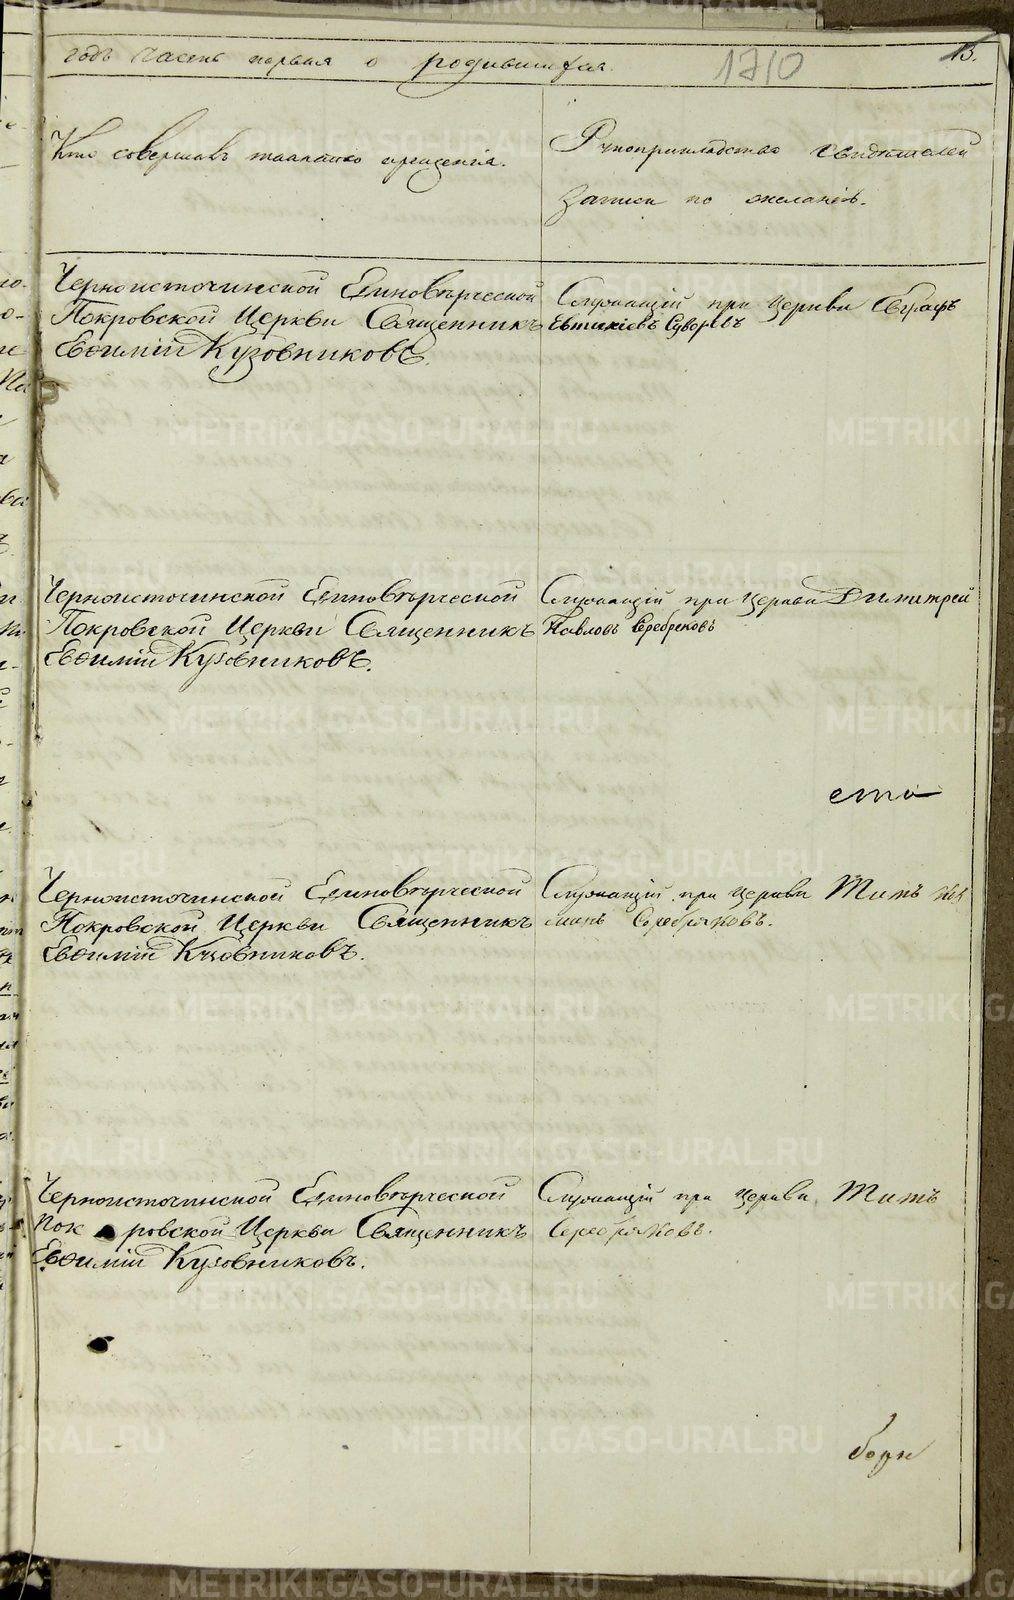 годъ часть первая о родившихся.
1710
13.
Кто совершалъ таинство крещенія.
Рукоприкладство свидѣтелей
записи по желанію.
Черноисточинской Единовѣрческой
Покровской Церкви Священникъ
Евѳимій Кузовниковъ.
Служащій при Церкви Евграфъ
Евтихіевъ Суворовъ
Черноисточинской Единовѣрческой
Покровской Церкви Священникъ
Евѳимій Кузовниковъ.
Служащій при Церкви Димитрей
Павловъ Серебряковъ
Черноисточинской Единовѣрческой
Покровской Церкви Священникъ
Евѳимій Кузовниковъ.
Служащій при Церкви Титъ
Серебряковъ.
Черноисточинской Единовѣрческой
Пок ровской Церкви Священникъ
Евѳимій Кузовниковъ.
Служащій при Церкви Титъ
Серебряковъ.
METRIKI.GASO-URAL.RU